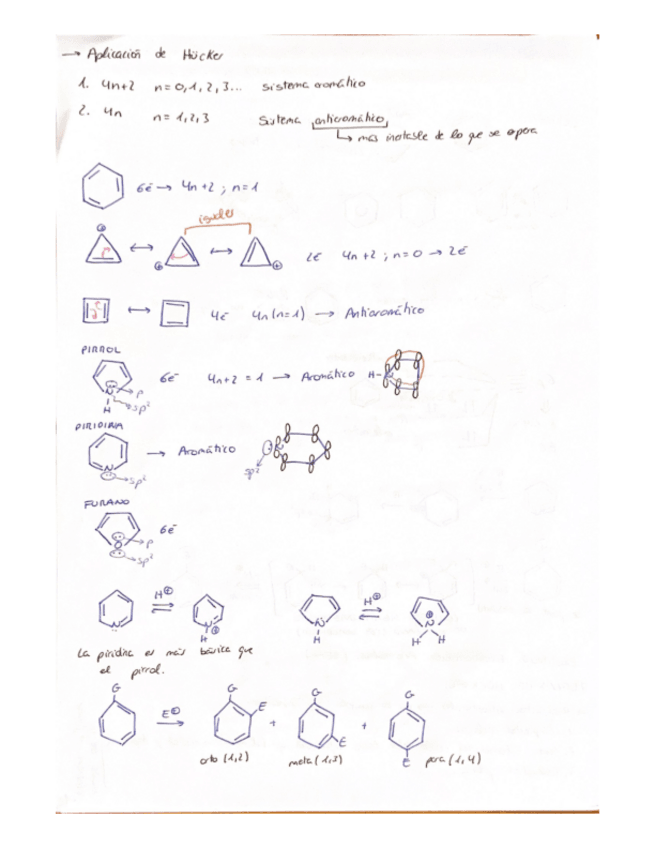 → Aplicación de Hücker
1. 4n+2 n=0,1,2,3... sistema aromático
2. 4n n=1,2,3 Sistema antiaromático
↳ más inestable de lo que se espera
6e⁻ → 4n+2; n=1
iguales
⊕ ↔ ⊕ ↔ ⊕ 2e⁻ 4n+2; n=0 → 2e⁻
↔ 4e⁻ 4n(n=1) → Antiaromático
PIRROL
6e⁻ 4n+2=1 → Aromático H-N
N → p
H sp²
PIRIDINA
→ Aromático
N → sp² sp²
FURANO
6e⁻
O → p
→ sp²
N H⊕ ⇌ N⊕ H N H H⊕ ⇌ ⊕N H H
La piridina es más básica que
el pirrol.
G E⊕ → G E + G E + G E
orto (1,2) meta (1,3) para (1,4)